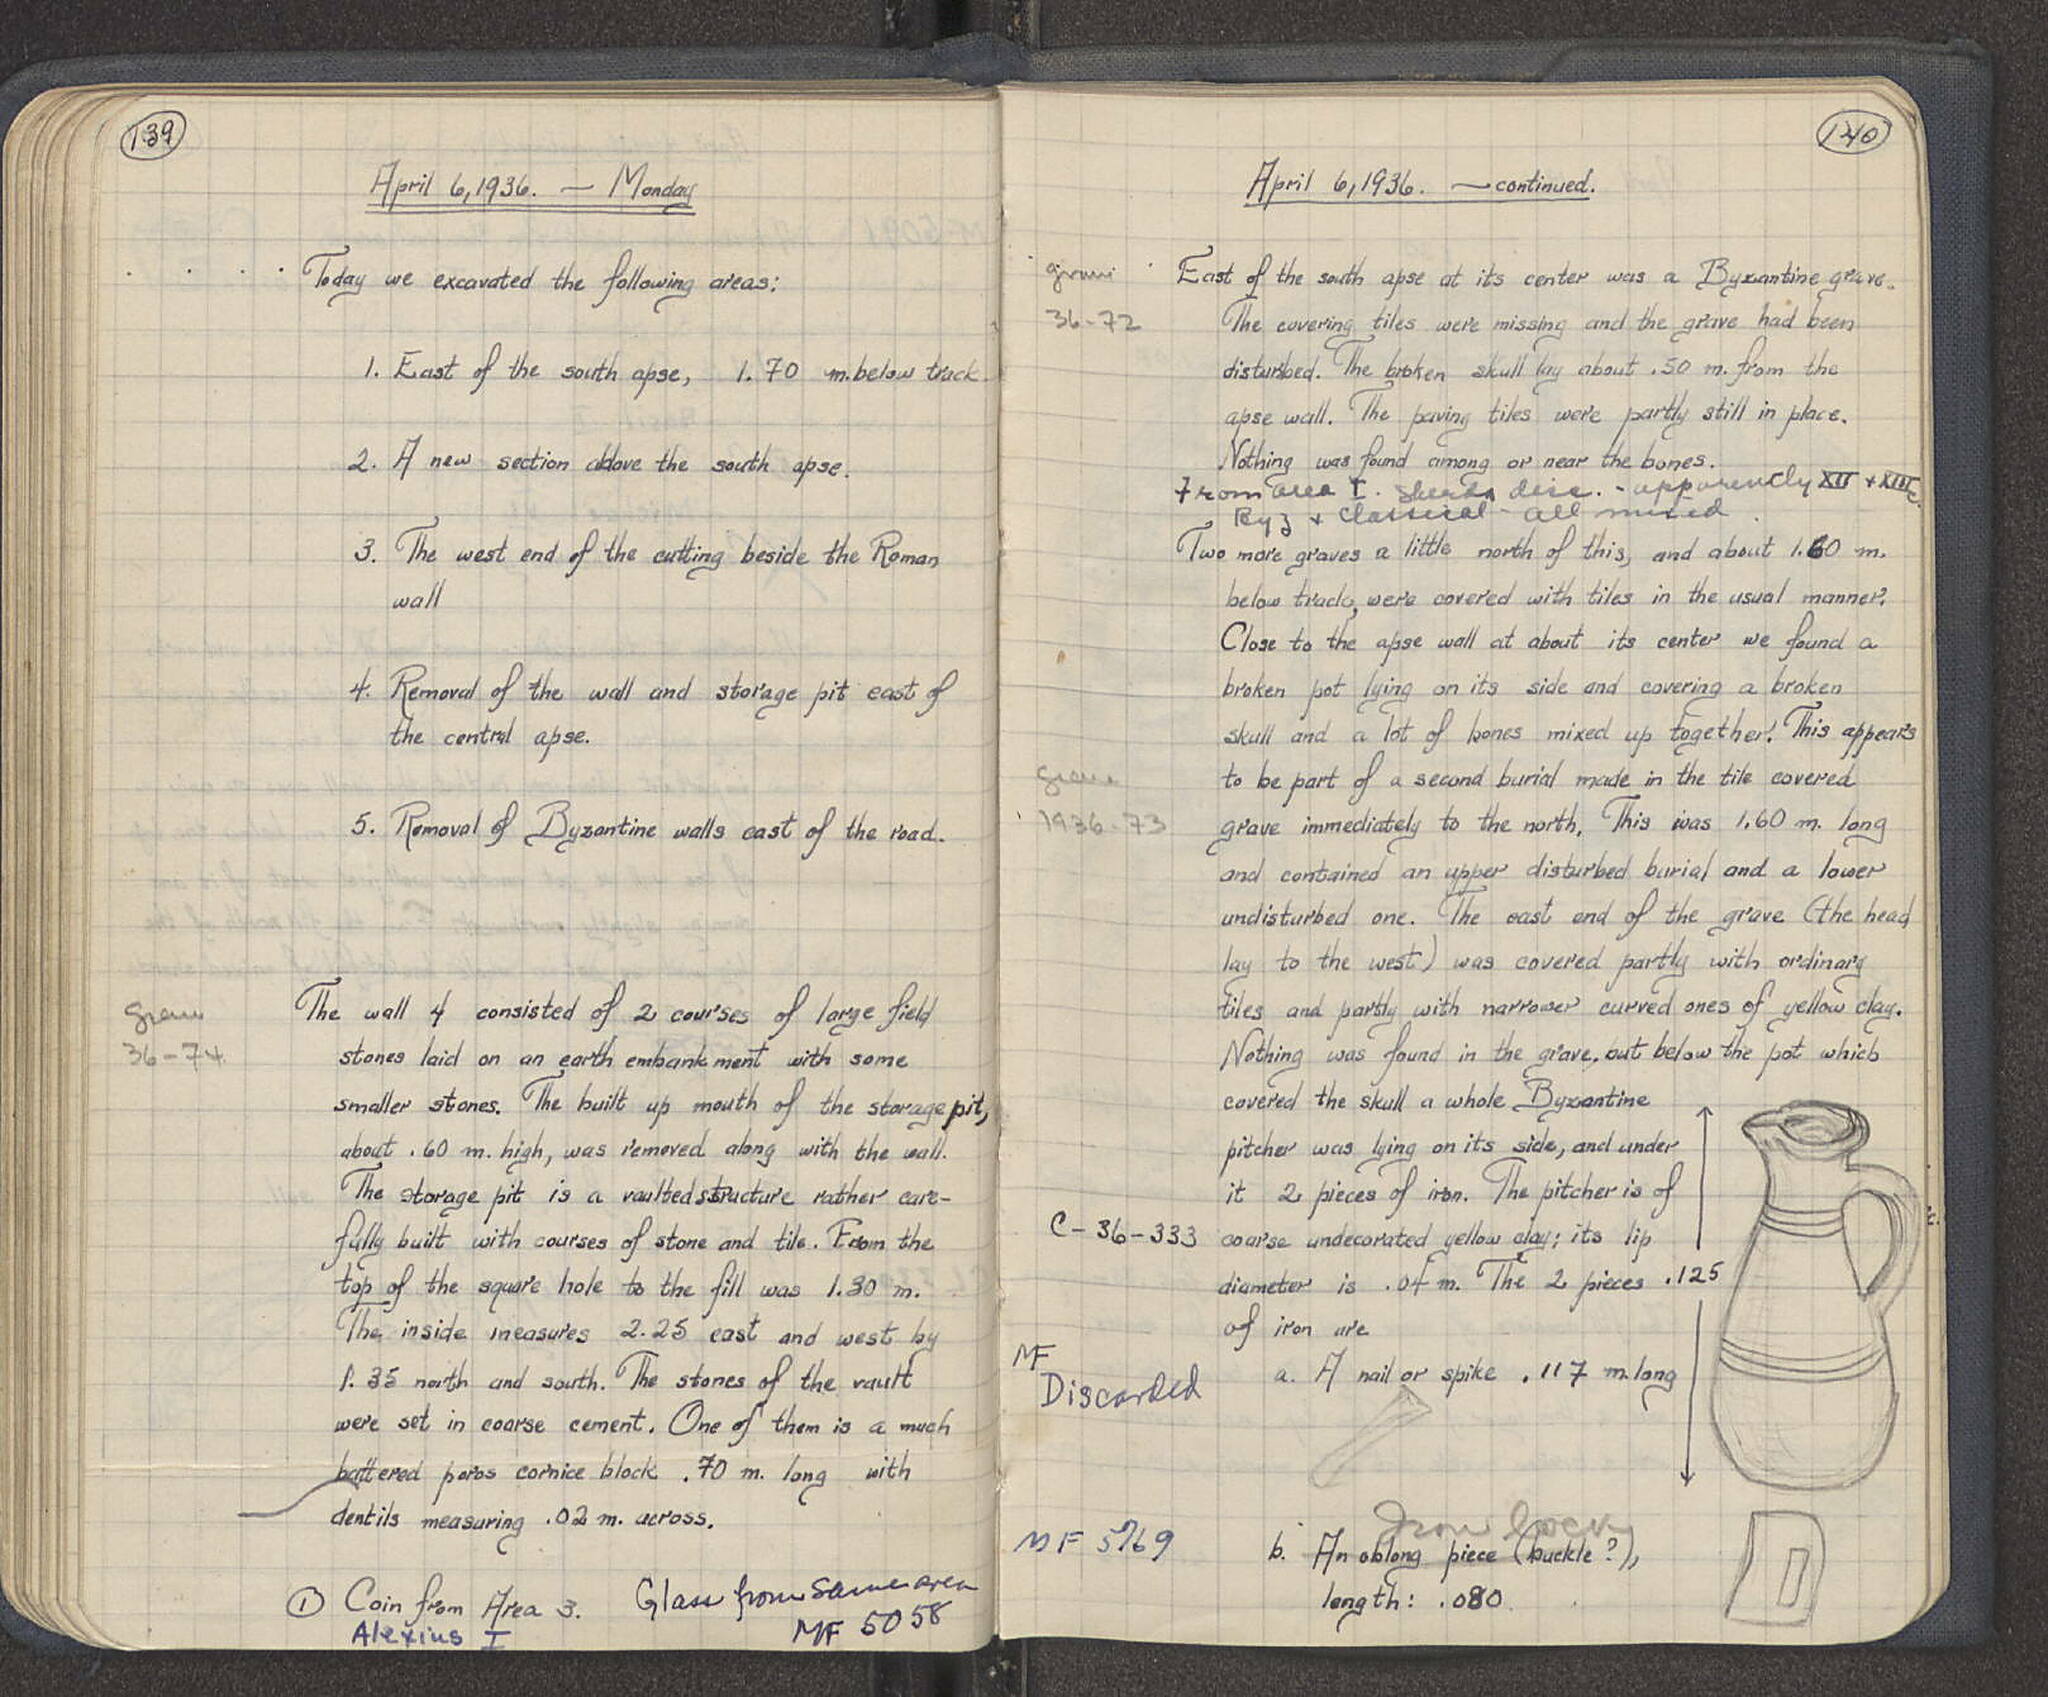 139
April 6, 1936. — Monday
Today we excavated the following areas:
1. East of the south apse, 1.70 m. below track.
2. A new section above the south apse.
3. The west end of the cutting beside the Roman
wall
4. Removal of the wall and storage pit east of
the central apse.
5. Removal of Byzantine walls east of the road.
grave
36-74
The wall 4 consisted of 2 courses of large field
stones laid on an earth embankment with some
smaller stones. The built up mouth of the storage pit,
about .60 m. high, was removed along with the wall.
The storage pit is a vaulted structure rather care-
fully built with courses of stone and tile. From the
top of the square hole to the fill was 1.30 m.
The inside measures 2.25 east and west by
1.35 north and south. The stones of the vault
were set in coarse cement. One of them is a much
battered poros cornice block .70 m. long with
dentils measuring .02 m. across.
① Coin from Area 3.
Alexius I
Glass from same area
MF 5058
140
April 6, 1936. — continued.
grave
36-72
East of the south apse at its center was a Byzantine grave.
The covering tiles were missing and the grave had been
disturbed. The broken skull lay about .50 m. from the
apse wall. The paving tiles were partly still in place.
Nothing was found among or near the bones.
From area I. sherds disc. - apparently XII + XIII c.
Byz + Classical - all mixed.
Two more graves a little north of this, and about 1.60 m.
below track, were covered with tiles in the usual manner.
Close to the apse wall at about its center we found a
broken pot lying on its side and covering a broken
skull and a lot of bones mixed up together. This appears
to be part of a second burial made in the tile covered
grave
1936-73
grave immediately to the north. This was 1.60 m. long
and contained an upper disturbed burial and a lower
undisturbed one. The east end of the grave (the head
lay to the west) was covered partly with ordinary
tiles and partly with narrower curved ones of yellow clay.
Nothing was found in the grave, but below the pot which
covered the skull a whole Byzantine
pitcher was lying on its side, and under
it 2 pieces of iron. The pitcher is of
C-36-333
coarse undecorated yellow clay; its lip
diameter is .04 m. The 2 pieces
.125
of iron are
MF
Discarded
a. A nail or spike .117 m. long
Iron
MF 5769
b. An oblong piece (buckle?),
length: .080.